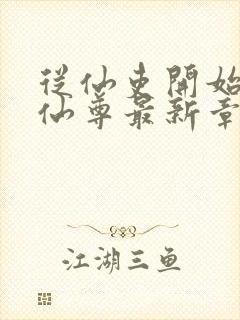 從仙吏開始
仙尊最新章
江湖三鱼